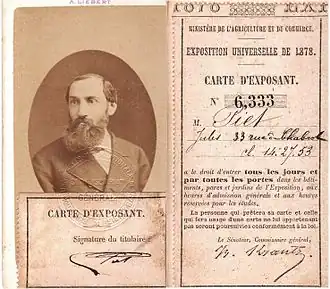 A. LIEBERT
CARTE D'EXPOSANT.
Signature du titulaire
Piet
MINISTÈRE DE L'AGRICULTURE ET DU COMMERCE.
EXPOSITION UNIVERSELLE DE 1878.
CARTE D'EXPOSANT.
N° 6,333
M. Piet
Jules 33 rue de Chabrol
cl. 14.27.53
a le droit d'entrer tous les jours et
par toutes les portes dans les bâti-
ments, parcs et jardins de l'Exposition, aux
heures d'admission générale et aux heures
réservées pour les études.
La personne qui prêtera sa carte et celle
qui fera usage d'une carte ne lui appartenant
pas seront poursuivies conformément à la loi.
Le Sénateur, Commissaire général,
Krantz